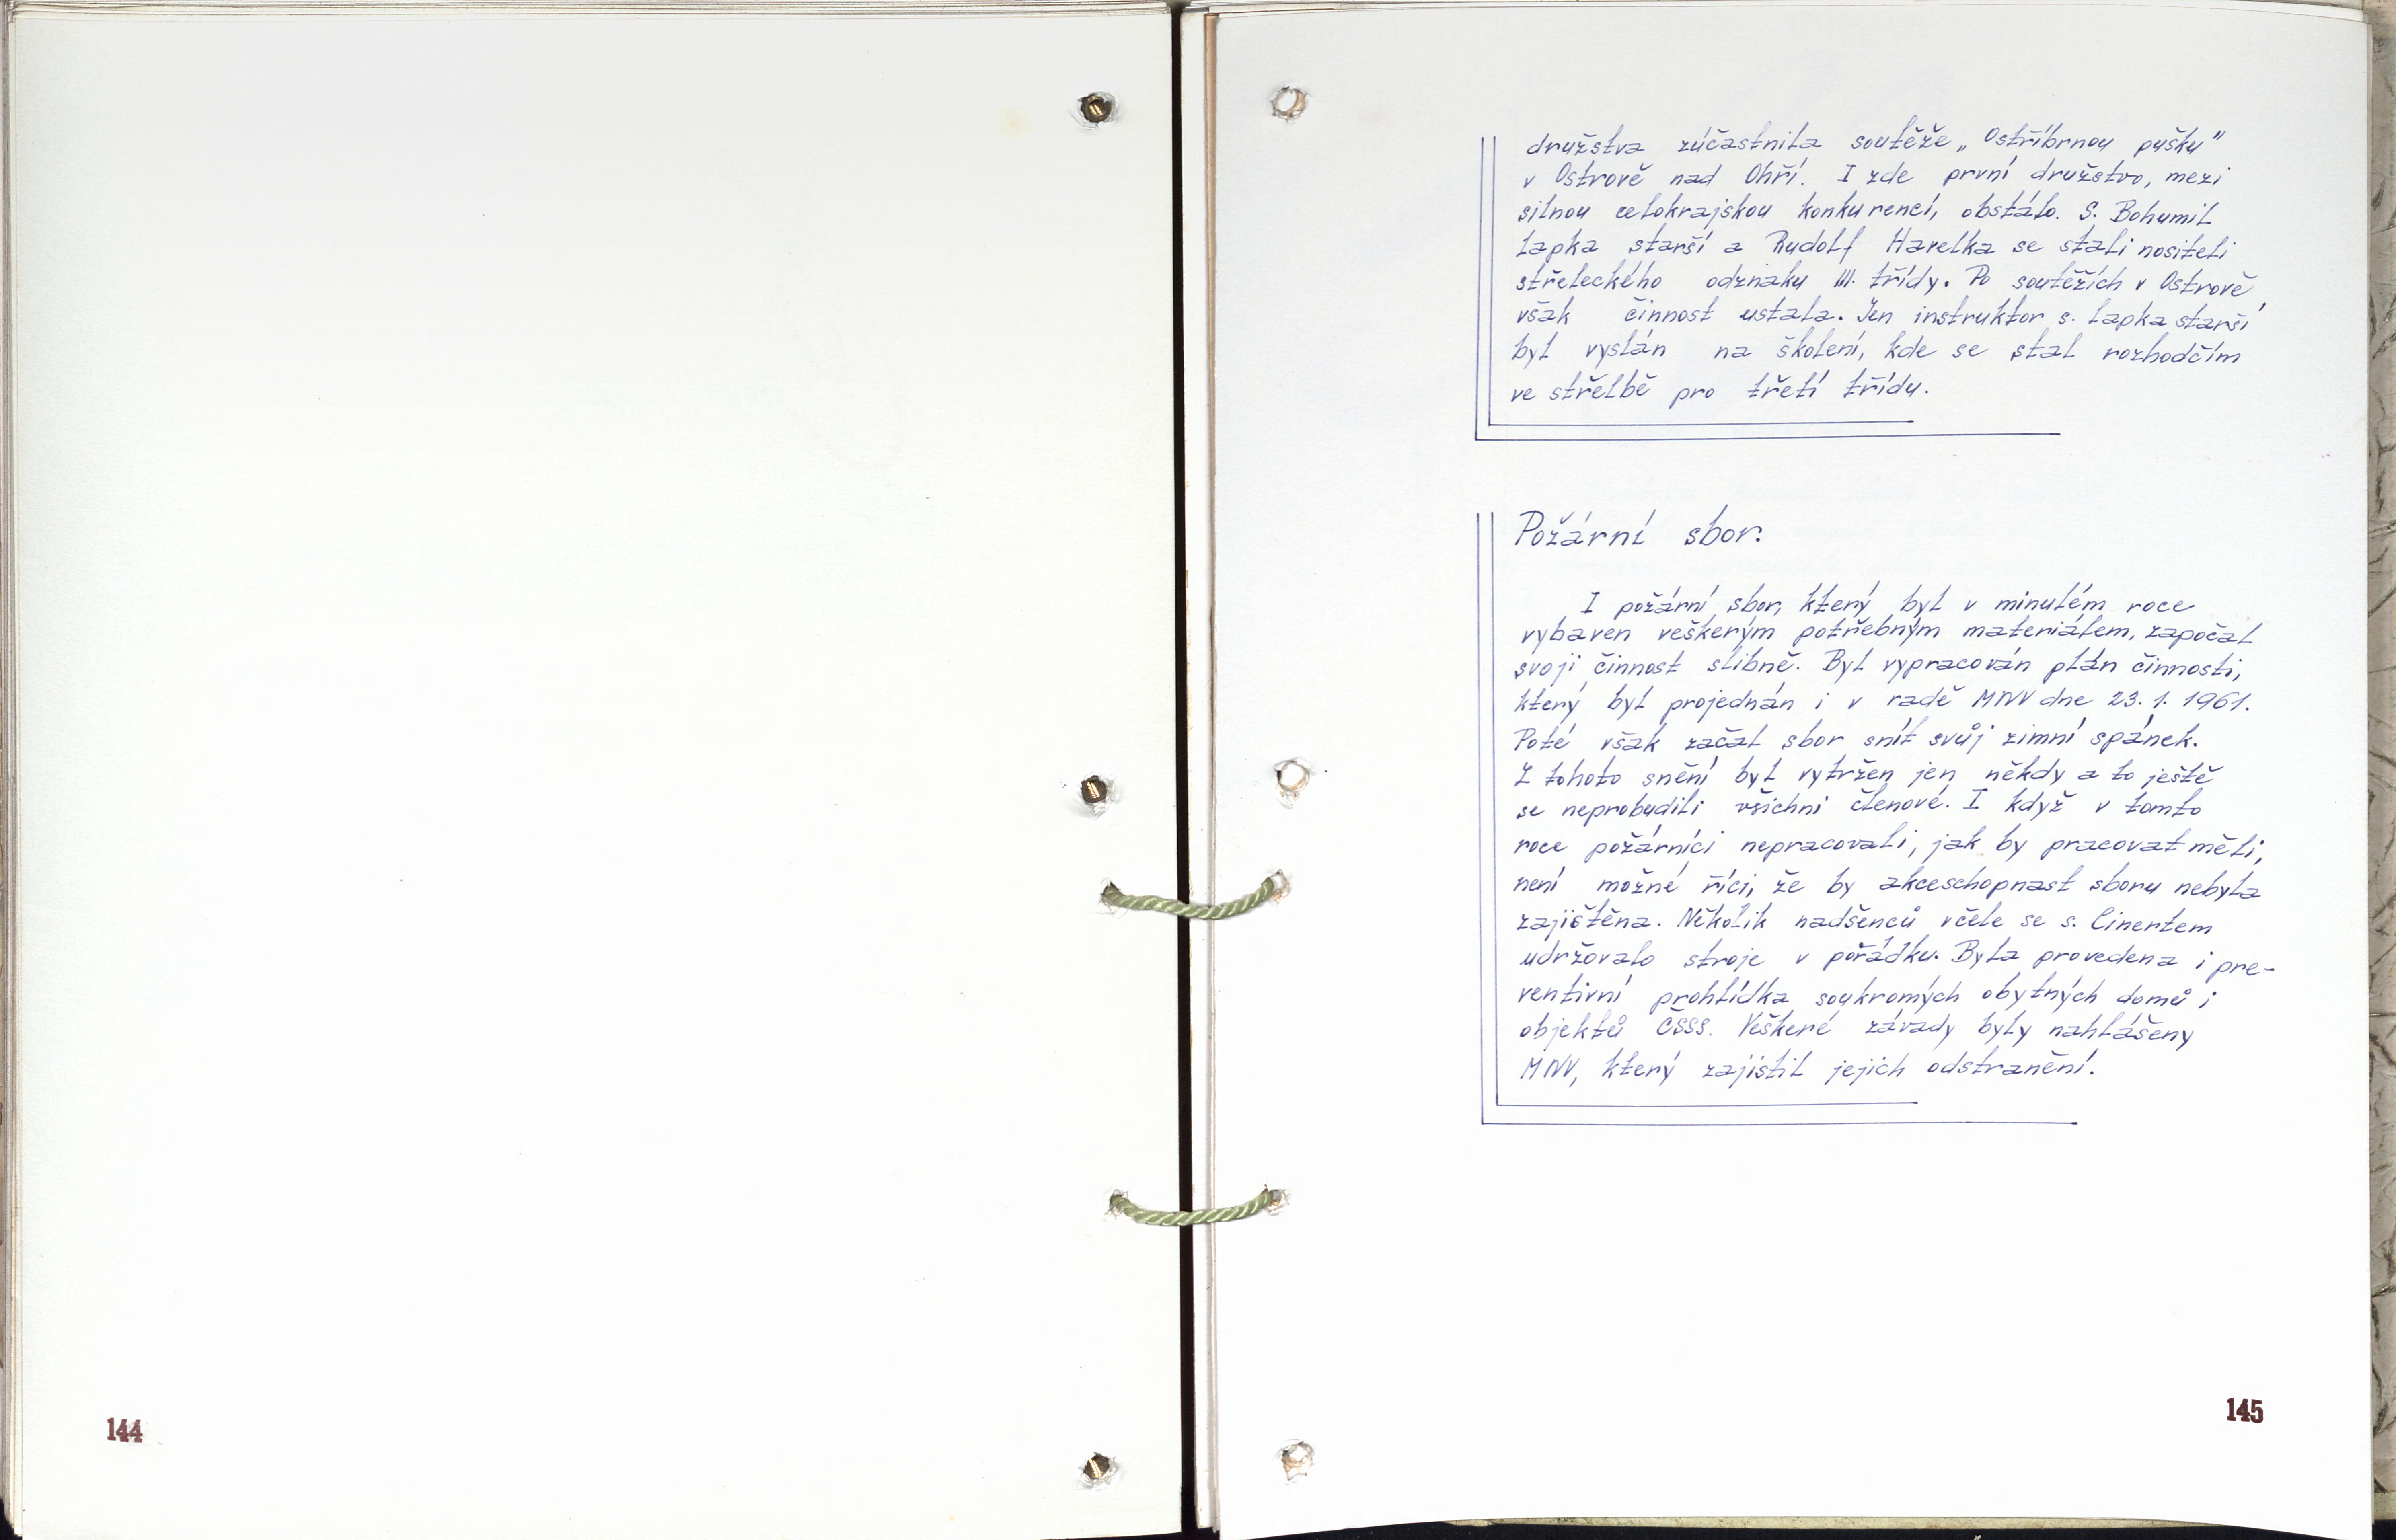 družstva zúčastnila soutěže „Ostříbrnou pušku"
v Ostrově nad Ohří. I zde první družstvo, mezi
silnou celokrajskou konkurencí, obstálo. S. Bohumil
Lapka starší a Rudolf Havelka se stali nositeli
střeleckého odznaku III. třídy. Po soutěžích v Ostrově
však činnost ustala. Jen instruktor s. Lapka starší
byl vyslán na školení, kde se stal rozhodčím
ve střelbě pro třetí třídu.
Požární sbor.
I požární sbor, který byl v minulém roce
vybaven veškerým potřebným materiálem, započal
svoji činnost slibně. Byl vypracován plán činnosti,
který byl projednán i v radě MNV dne 23. 1. 1961.
Poté však začal sbor snít svůj zimní spánek.
Z tohoto snění byl vytržen jen někdy a to ještě
se neprobudili všichni členové. I když v tomto
roce požárníci nepracovali, jak by pracovat měli,
není možné říci, že by akceschopnast sboru nebyla
zajištěna. Několik nadšenců včele se s. Cinertem
udržovalo stroje v pořádku. Byla provedena i pre-
ventivní prohlídka soukromých obytných domů i
objektů ČSSS. Veškeré závady byly nahlášeny
MNV, který zajistil jejich odstranění.
144
145